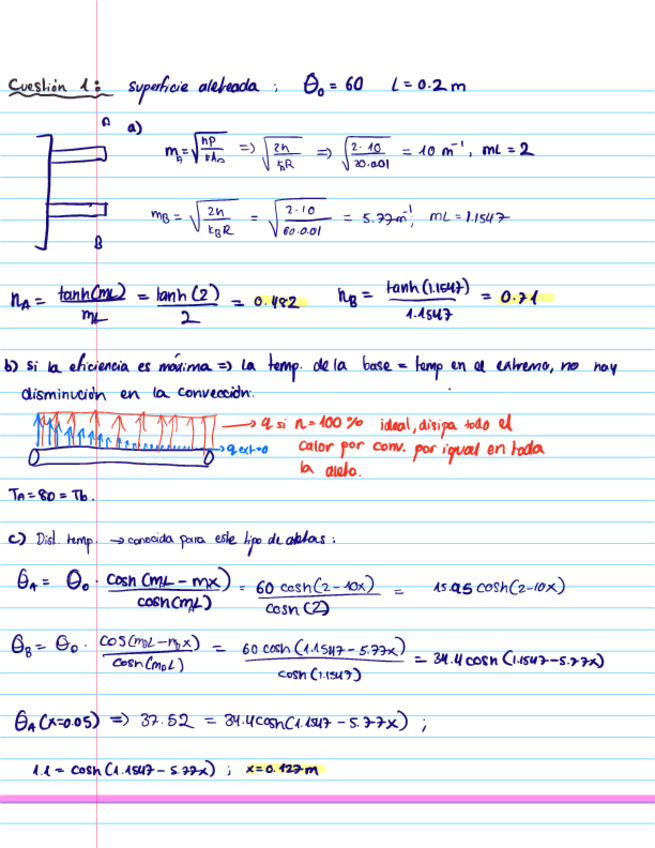 Cuestión 1: superficie aleteada; θ₀ = 60 L = 0.2 m
A
a)
m_A = √(hP/kA_c) => √(2h/k_A R) => √(2·10/20·0.01) = 10 m⁻¹, mL = 2
m_B = √(2h/k_B R) = √(2·10/60·0.01) = 5.77 m⁻¹; mL = 1.1547
B
n_A = tanh(mL)/mL = tanh(2)/2 = 0.482 n_B = tanh(1.1547)/1.1547 = 0.71
b) Si la eficiencia es máxima => la temp. de la base = temp en el extremo, no hay
disminución en la convección.
→ q si n = 100 % ideal, disipa todo el
→ q ext=0 calor por conv. por igual en toda
la aleta.
T_A = 80 = Tb.
c) Dist. temp. → conocida para este tipo de aletas:
θ_A = θ₀ · cosh(mL - mx)/cosh(m_A L) = 60 cosh(2-10x)/cosh(2) = 15.95 cosh(2-10x)
θ_B = θ₀ · cos(m_B L - m_B x)/cosh(m_B L) = 60 cosh(1.1547 - 5.77x)/cosh(1.1547) = 34.4 cosh(1.1547-5.77x)
θ_A(x=0.05) => 37.52 = 34.4 cosh(1.1547 - 5.77x);
1.1 = cosh(1.1547 - 5.77x); x = 0.127 m